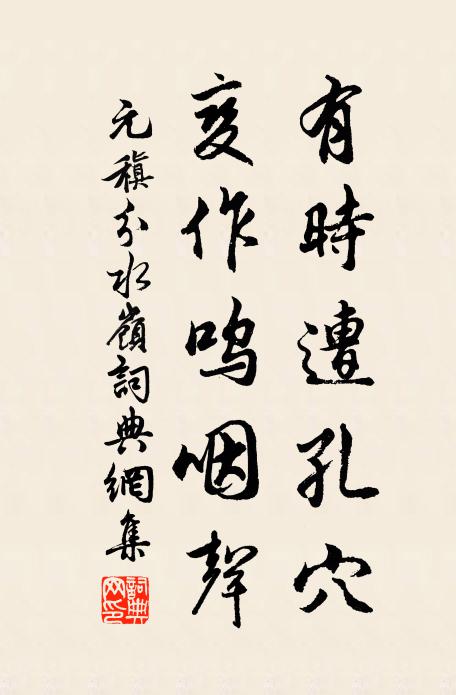 有時遭孔穴
变作呜咽聲
元稹分水嶺詞典網集
詞典网印